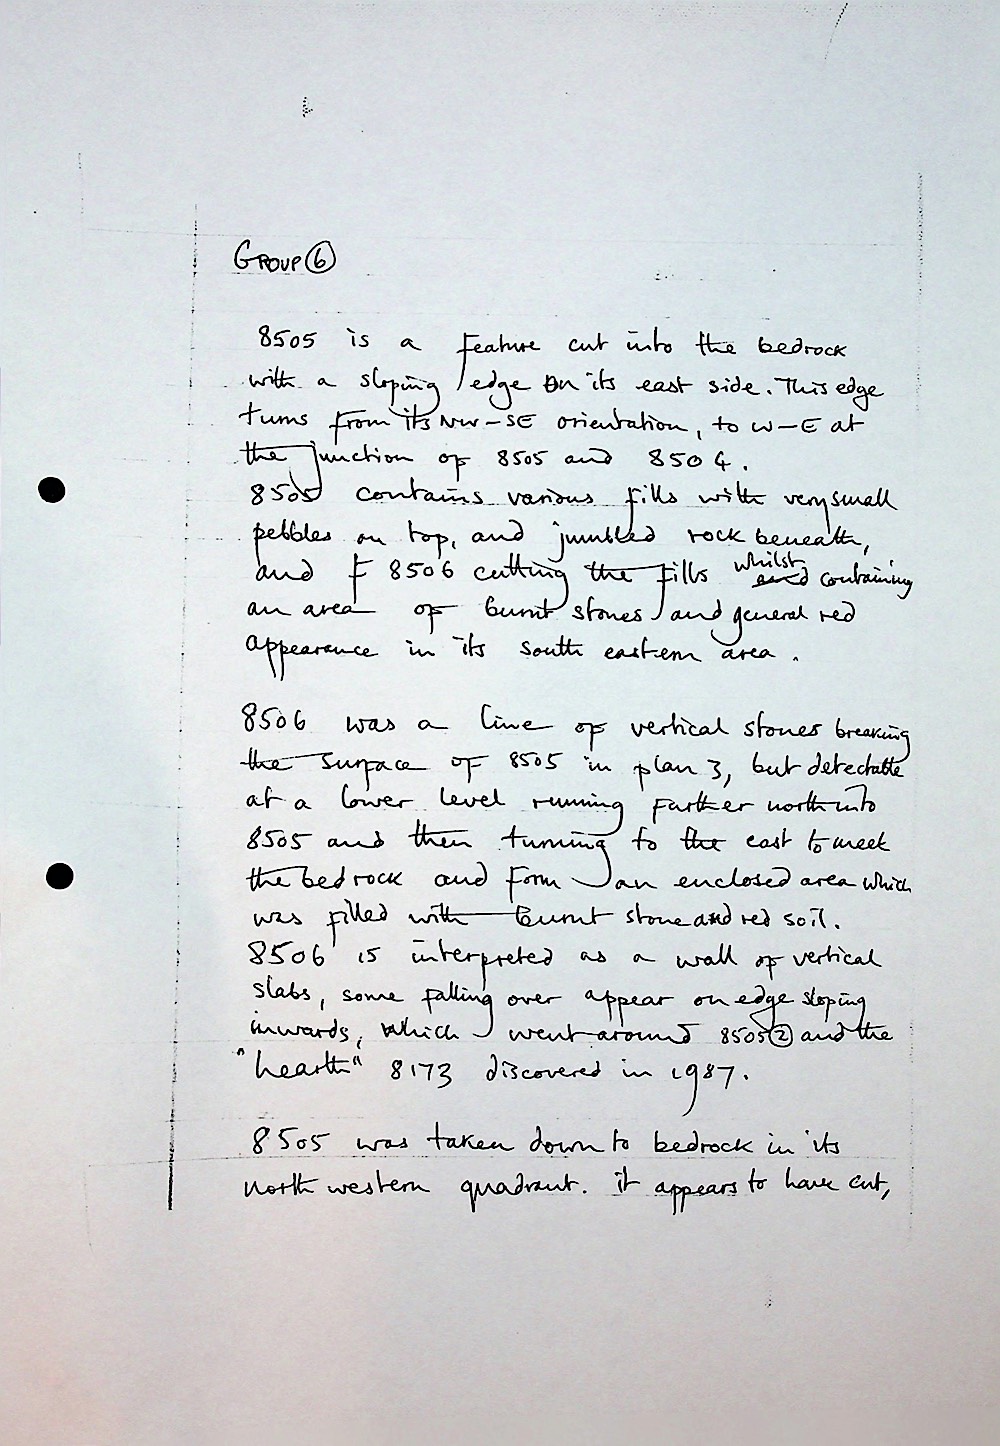 GROUP ⑥
8505 is a feature cut into the bedrock
with a sloping edge on its east side. This edge
turns from its NW-SE orientation, to W-E at
the junction of 8505 and 8504.
8505 contains various fills with very small
pebbles on top, and jumbled rock beneath,
and F 8506 cutting the fills whilst containing
an area of burnt stones and general red
appearance in its south eastern area.
8506 was a line of vertical stones breaking
the surface of 8505 in plan 3, but detectable
at a lower level running further north into
8505 and then turning to the east to meet
the bedrock and form an enclosed area which
was filled with burnt stone and red soil.
8506 is interpreted as a wall of vertical
slabs, some falling over appear on edge sloping
inwards, which went around 8505② and the
"hearth" 8173 discovered in 1987.
8505 was taken down to bedrock in its
north western quadrant. it appears to have cut,